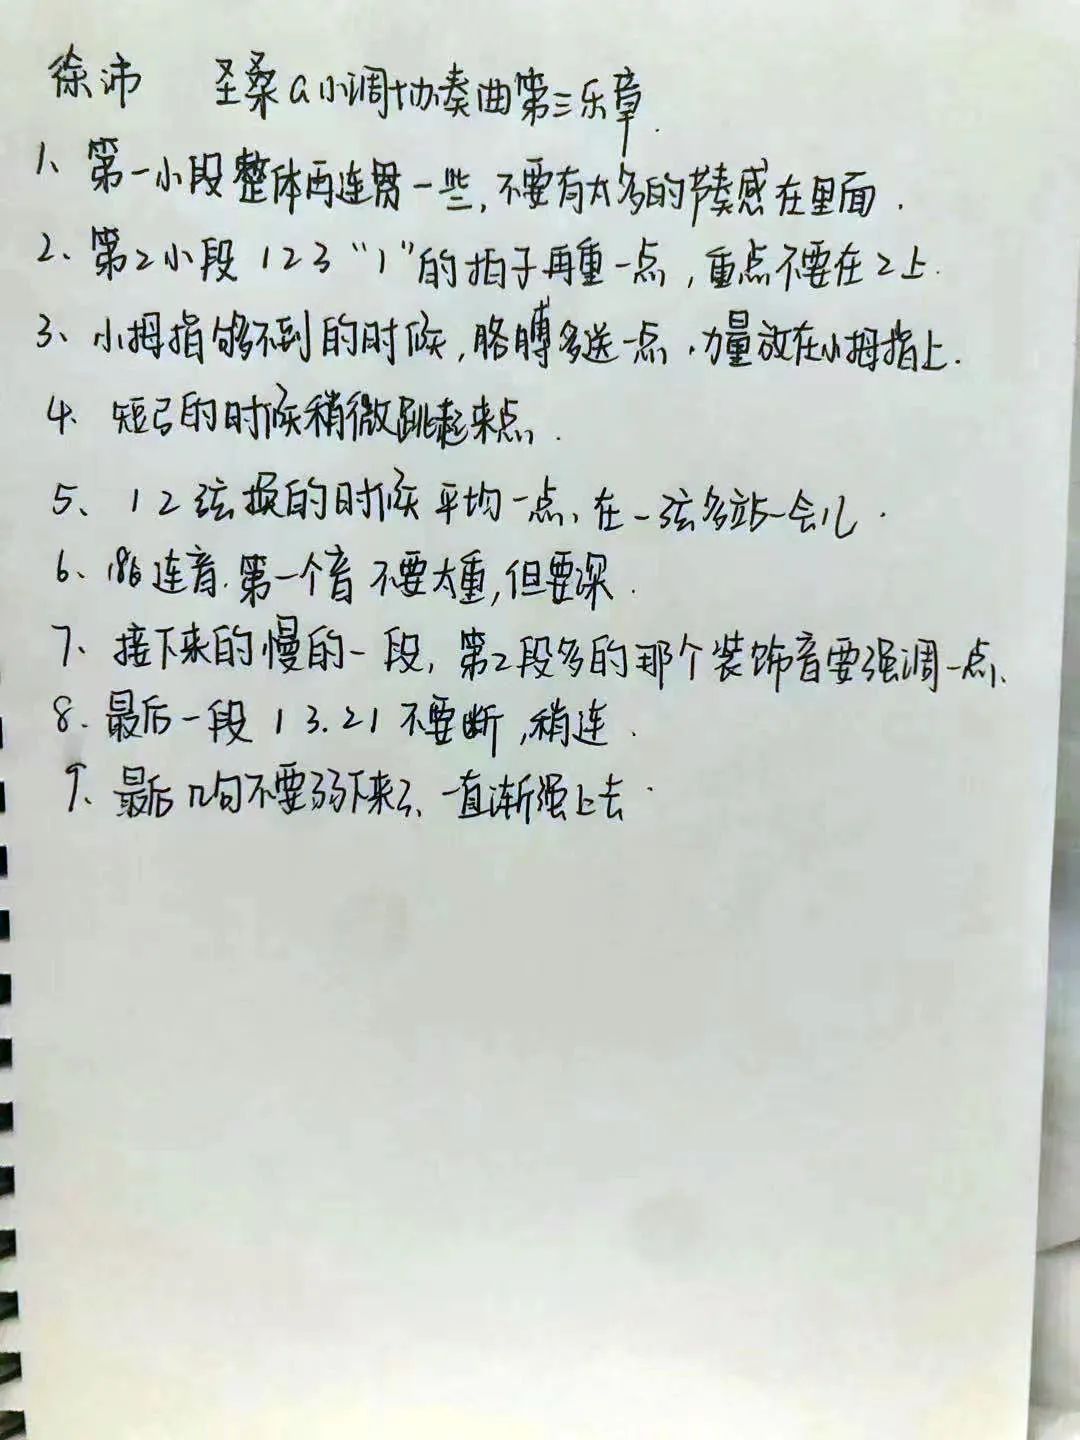 徐沛 圣桑a小调协奏曲第三乐章.
1、第一小段整体再连贯一些,不要有太多的节奏感在里面.
2、第2小段 123 "1"的拍子再重一点,重点不要在2上.
3、小拇指够不到的时候,胳膊多送一点,力量放在小拇指上.
4. 短弓的时候稍微跳起来点.
5、12弦换的时候平均一点、在一弦多站一会儿.
6、186连音.第一个音不要太重,但要深.
7、接下来的慢的一段,第2段多的那个装饰音要强调一点、
8.最后一段 1 3.21 不要断,稍连.
9、最后几句不要弱下来了、一直渐强上去.